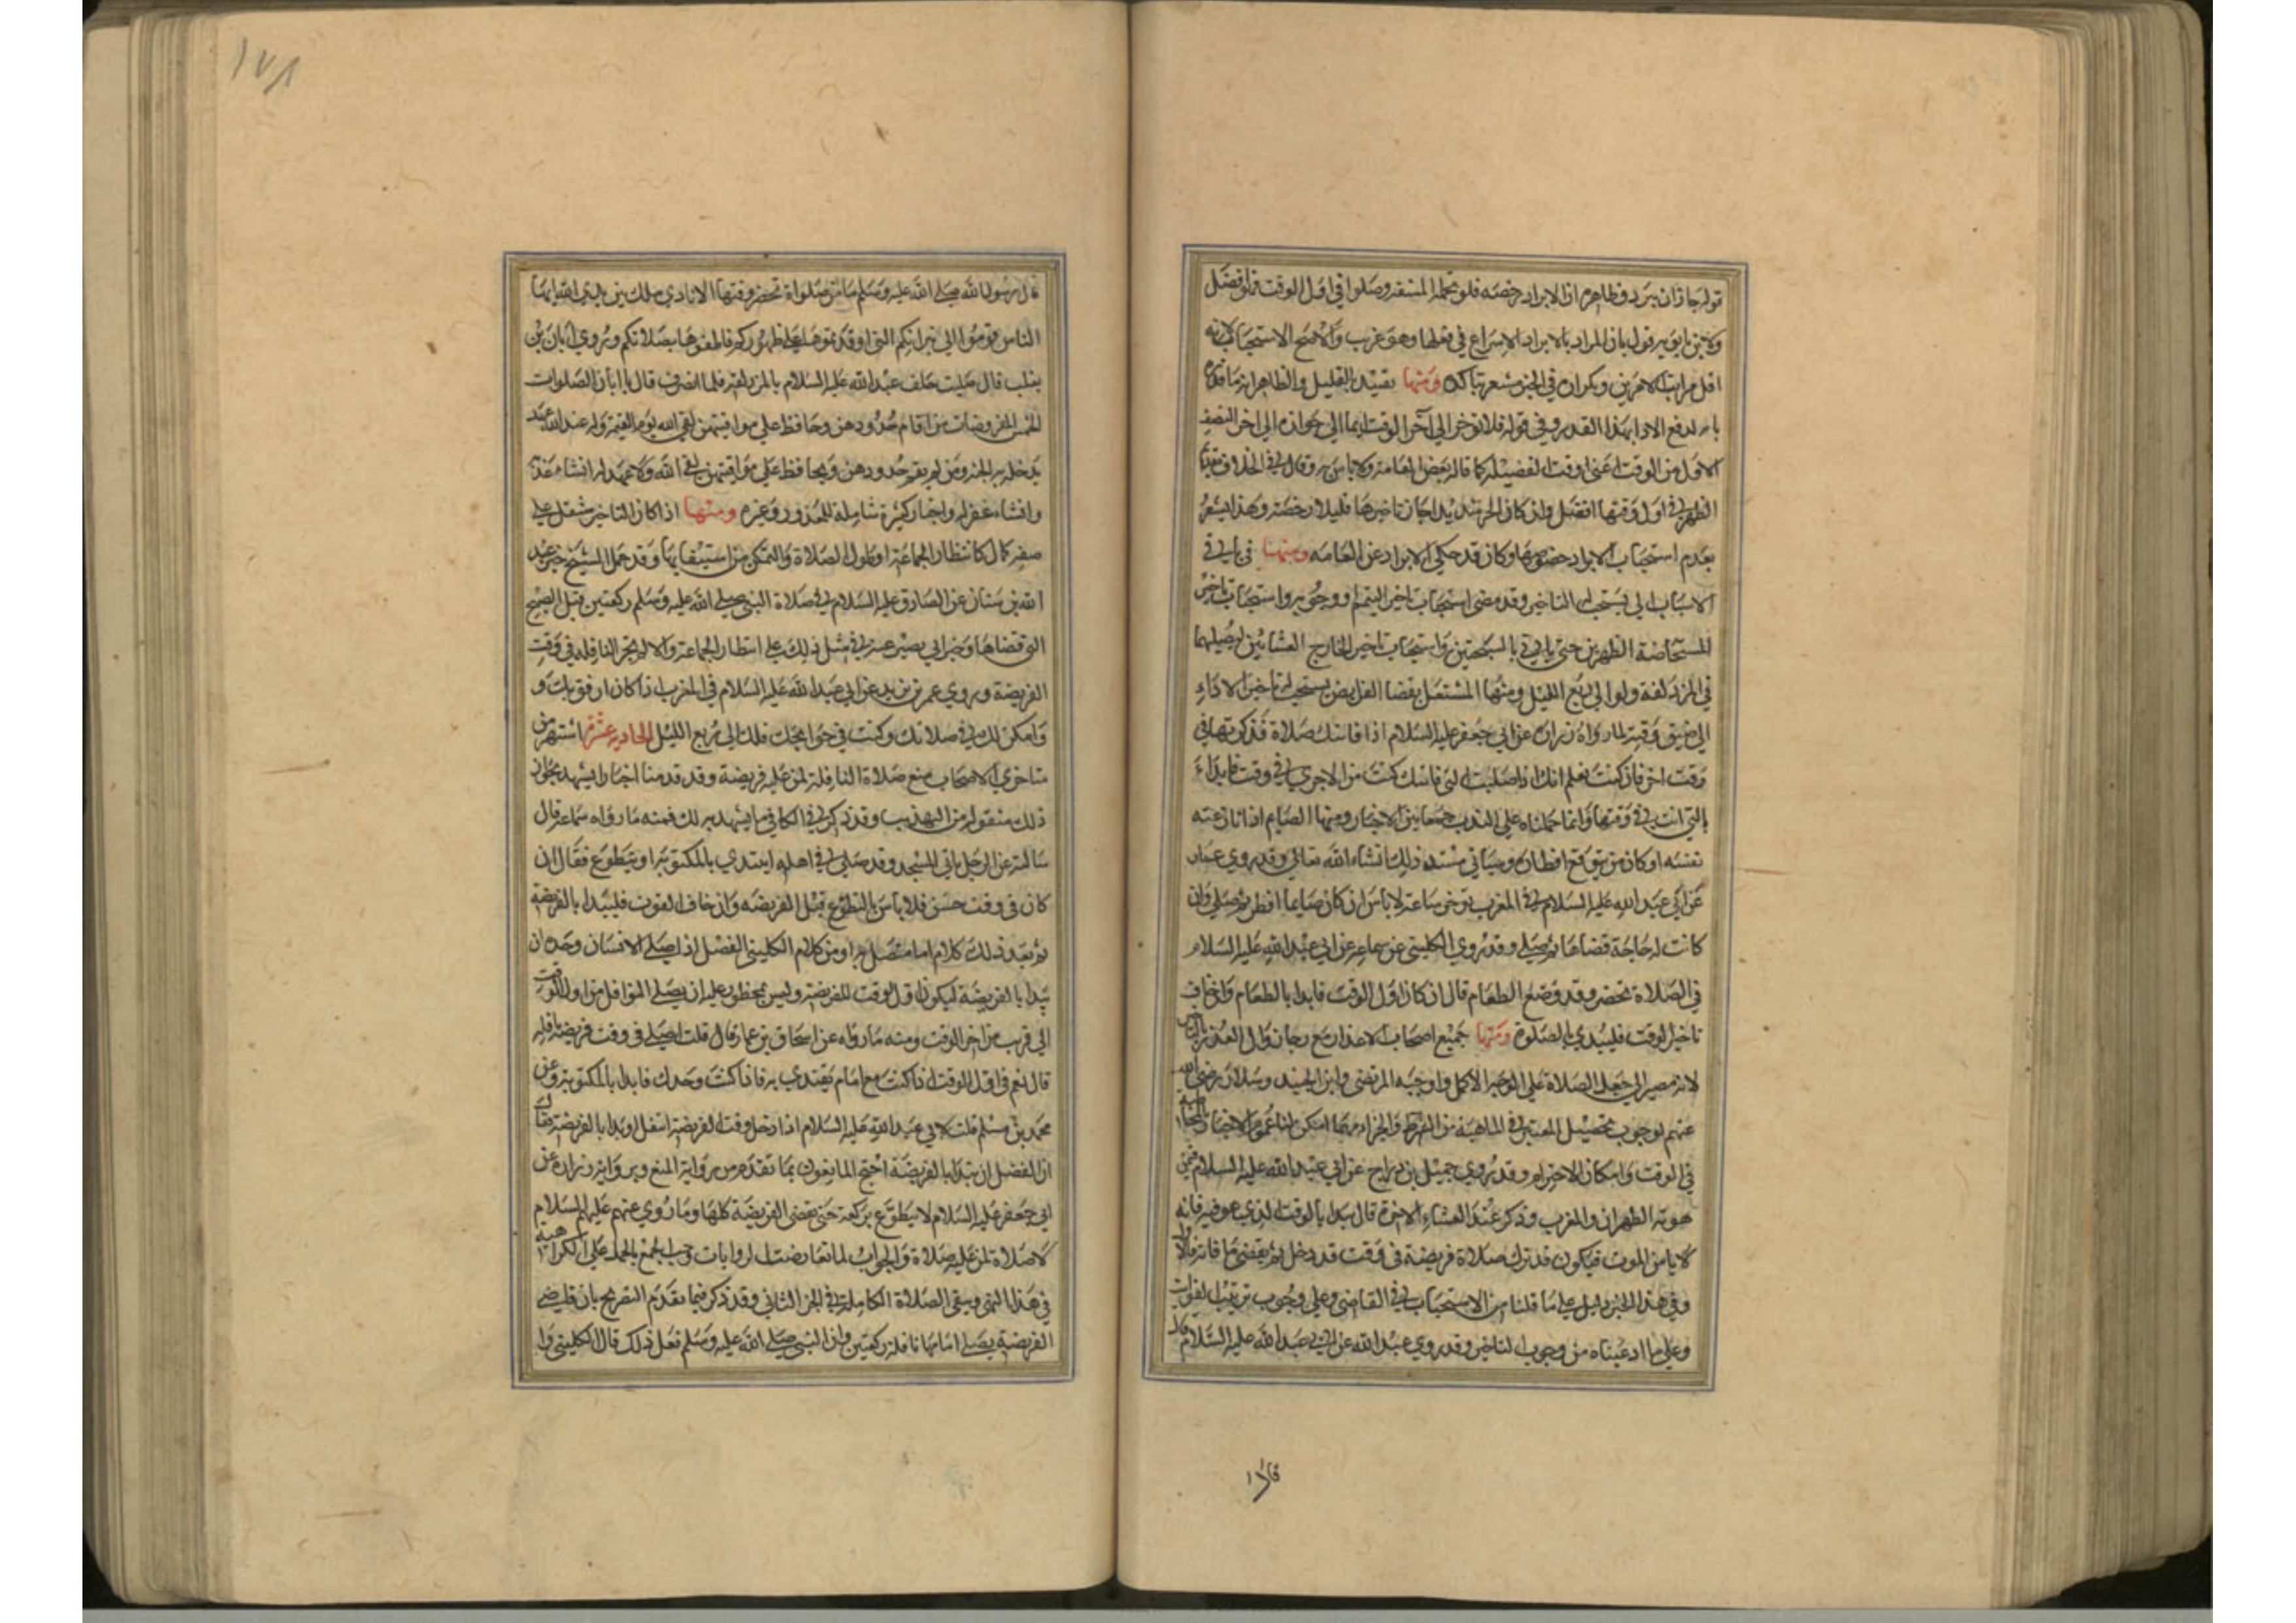 قوله جاز ان يبرد فظاهره ان الابراد رخصه فلو تحمل المشقه وصلوا في اول الوقت فهو افضل
ولابن بابويه قول بان المراد بالابراد الاسراع في فعلها وهو غريب والاصح الاستحباب لانه
اقل مراتب الامرين ويكون في الخبر مشعر بتاكده ومنها تقييد بالقليل والظاهر انه ما قلناه
بامر لدفع الاذا بهذا القدر وفي قوله فلا توخر الى آخر الوقت ايما الى جوازه الى اخر النصف
الاول من الوقت اعني وقت الفضيلة كما قاله بعض العامة ولا باس به وقال في الخلاف تقديم
الظهر في اول وقتها افضل وان كان الحر شديدا جاز تاخيرها قليلا رخصة وهذا يشعر
بعدم استحباب الابراد وكان قد حكى الابراد عن العامه ومنها في باقي
الاسباب التي يستحب لها التاخير وقد مضى استحباب تاخير المتيمم او وجوبه واستحباب تاخير
المستحاضة الظهرين حتى ياتي بالسبحتين واستحباب تاخير الحاج العشائين ليصليهما
في المزدلفة ولو الى ربع الليل ومنها المشتغل بقضا الفرايض يستحب له تاخير الاداء
الى ضيق وقته لما رواه زرارة عن ابي جعفر عليه السلام اذا فاتتك صلاة فذكرتها في
وقت اخر فان كنت تعلم انك اذا صليت التي فاتتك كنت من الاخرى في وقت فابداء
بالتي انت في وقتها وانما حملناه على الندب جمعا بين الاخبار ومنها الصيام اذا نازعته
نفسه او كان من يتوقع افطاره وسياتي مستند ذلك انشاء الله تعالى وقد روى عمار
عن ابي عبد الله عليه السلام في المغرب توخر ساعة لا باس ان كان صايما افطر ثم صلى وان
كانت له حاجة قضاها ثم صلى وقد روى الكليني عن سماعه عن ابي عبد الله عليه السلام
في الصلاة تحضر وقد وضع الطعام قال ان كان اول الوقت فابدا بالطعام وان خاف
تاخير الوقت فليبدي بالصلوة ومنها جميع اصحاب الاعذار مع رجا زوال العذر بالتاخير
لانه مصير الى جعل الصلاة على الوجه الاكمل واوجبه المرتضى وابن الجنيد وسلار رضي الله
عنهم لوجوب تحصيل المعتبر في الماهية من الشرط والجزاء مهما امكن لنا عموم الاخبار
في الوقت وامكان الاخترام وقد روى جميل بن دراج عن ابي عبد الله عليه السلام فمن
فوته الظهران والمغرب وذكر عند العشاء الاخرة قال يبدا بالوقت الذي هو فيه فانه
لا يامن الموت فيكون قد ترك صلاة فريضة في وقت قد دخل ثم يقضي ما فاته
وفي هذا الخبر دليل على ما قلنا من الاستحباب في القاضي وعلى وجوب ترتيب الفوات
وعلى ما ادعيناه من وجوب التاخير وقد روى عبد الله عن ابي عبد الله عليه السلام قال
قال
١٧٨
قال رسول الله صلى الله عليه وسلم ما من صلواة تحضر وقتها الا نادى ملك بين يدي الله ايها
الناس قوموا الى نيرانكم التي اوقدتموها على ظهوركم فاطفوها بصلاتكم وروى ابان بن
تغلب قال صليت خلف عبد الله عليه السلام بالمزدلفه فلما انصرف قال يا ابان الصلوات
الخمس المفروضات من اقام حدودهن وحافظ على مواقيتهن لقي الله يوم القيمة وله عند الله عهد
يدخله به الجنه ومن لم يقم حدودهن ويحافظ على مواقيتهن لقي الله ولا عهد له ان شاء عذبه
وان شاء غفر له واخبار كثيرة شاملة للمعذور وغيره ومنها اذا كان التاخير مشتمل على
صفه كمال كانتظار الجماعة او طول الصلاة والتمكن من استيفايها وقد حمل الشيخ خبر عبد
الله بن سنان عن الصادق عليه السلام في صلاة النبي صلى الله عليه وسلم ركعتين قبل الصبح
التي قضاها وخبر ابي بصير عنه في مثل ذلك على انتظار الجماعة والا لم يجز النافله في وقت
الفريضة وروى عمر بن يزيد عن ابي عبد الله عليه السلام في المغرب اذا كان ارفق بك و
وامكن لك في صلاتك وكنت في حوايجك فلك الى ربع الليل الحادية عشر اشتهر من
متاخري الاصحاب منع صلاة النافلة لمن عليه فريضة وقد قدمنا اخبارا يشهد بجواز
ذلك منقوله من التهذيب وقد ذكر في الكافي ما يشهد بذلك فمنه ما رواه سماعة قال
سالته عن الرجل ياتي المسجد وقد صلى في اهله ايبتدي بالمكتوبة او يتطوع فقال ان
كان في وقت حسن فلا باس بالتطوع قبل الفريضة وان خاف الفوت فليبدا بالفريضة
ثم بعد ذلك كلام اما متصل به او من كلام الكليني الفضل اذا صلى الانسان وحده ان
يبدا بالفريضة ليكون اول الوقت للفريضة وليس بمحظور عليه ان يصلي النوافل من اول الوقت
الى قريب من اخر الوقت ومنه ما رواه عن اسحاق بن عمار قال قلت اصلي في وقت فريضة نافله
قال نعم في اول الوقت اذا كنت مع امام يقتدى به فاذا كنت وحدك فابدا بالمكتوبة وعن
محمد بن مسلم قلت لابي عبد الله عليه السلام اذا دخل وقت الفريضة اتنفل او ابدا بالفريضة فقال
ان الفضل ان تبدا بالفريضة احتج المانعون بما تقدم من رواية المنع وبرواية زرارة عن
ابي جعفر عليه السلام لا يتطوع بركعة حتى يقضي الفريضة كلها وما روي عنهم عليهم السلام
لا صلاة لمن عليه صلاة والجواب لما تعارضت الروايات وجب الجمع بالحمل على الكراهية
في هذا النهي وبنفي الصلاة الكاملة في الخبر الثاني وقد ذكر فيما تقدم التصريح بان قاضي
الفريضة يصلي امامها نافلة ركعتين وان النبي صلى الله عليه وسلم فعل ذلك قال الكليني وا